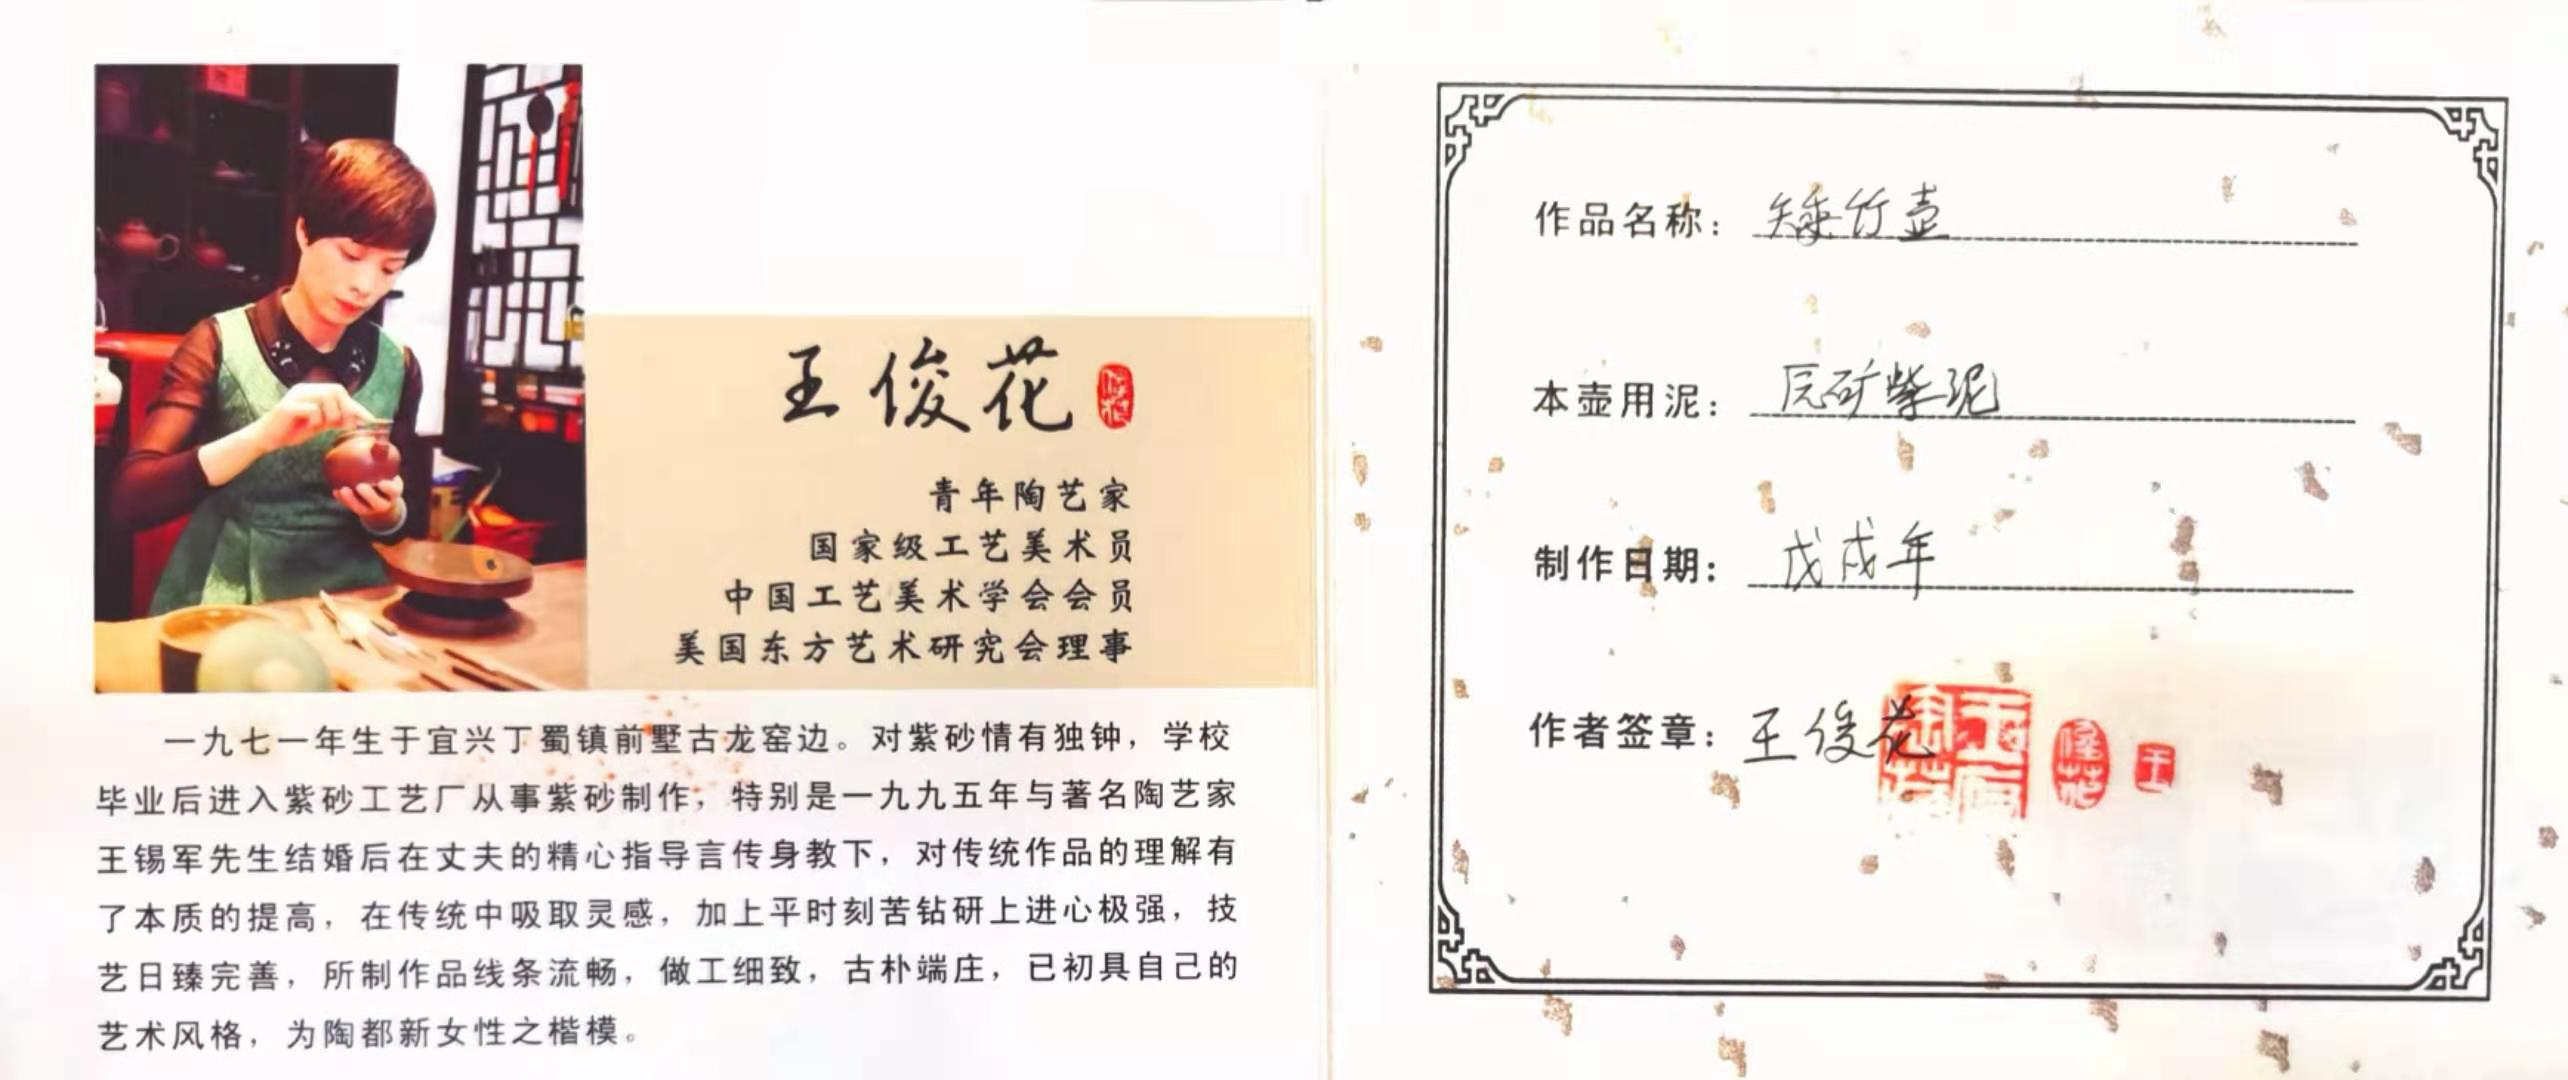 王俊花
俊花
青年陶艺家
国家级工艺美术员
中国工艺美术学会会员
美国东方艺术研究会理事
一九七一年生于宜兴丁蜀镇前墅古龙窑边。对紫砂情有独钟，学校
毕业后进入紫砂工艺厂从事紫砂制作，特别是一九九五年与著名陶艺家
王锡军先生结婚后在丈夫的精心指导言传身教下，对传统作品的理解有
了本质的提高，在传统中吸取灵感，加上平时刻苦钻研上进心极强，技
艺日臻完善，所制作品线条流畅，做工细致，古朴端庄，已初具自己的
艺术风格，为陶都新女性之楷模。
作品名称：矮竹壶
本壶用泥：原矿紫泥
制作日期：戊戌年
作者签章：王俊花
俊花
王